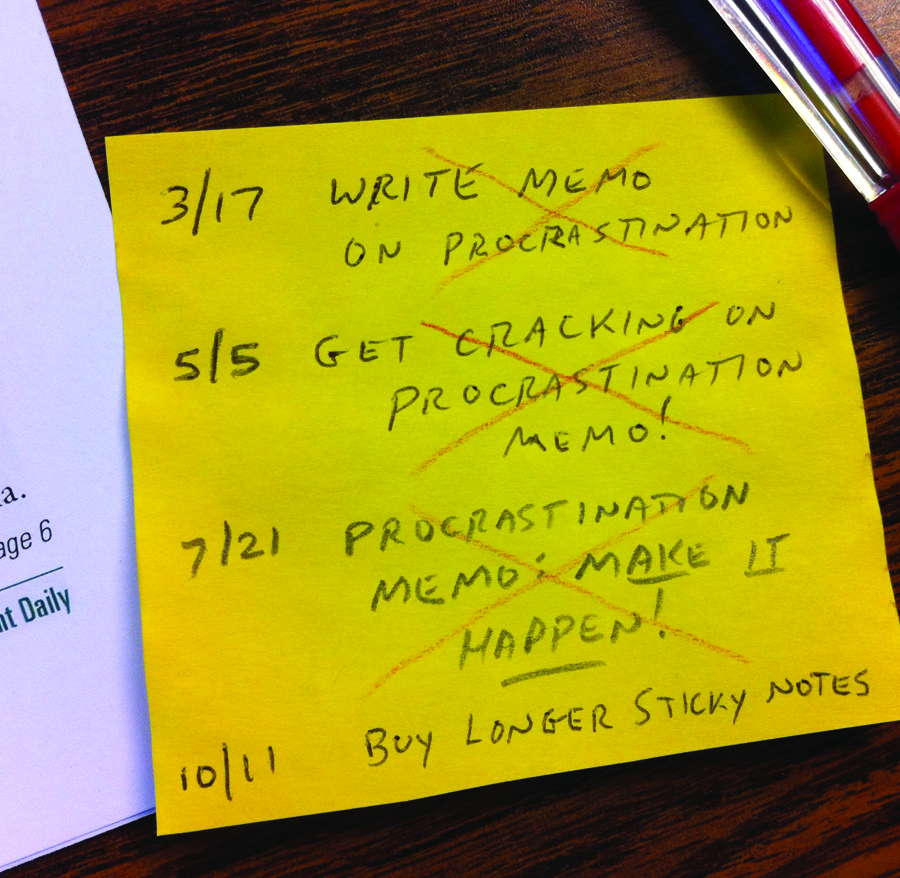 3/17 WRITE MEMO
ON PROCRASTINATION
5/5 GET CRACKING ON
PROCRASTINATION
MEMO!
7/21 PROCRASTINATION
MEMO: MAKE IT
HAPPEN!
10/11 BUY LONGER STICKY NOTES
a.
age 6
nt Daily